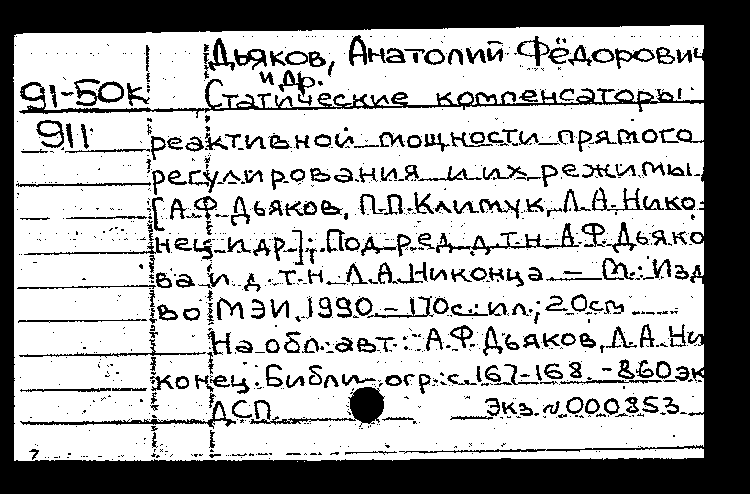 Дьяков, Анатолий Фёдорович
и др.
91-50К Статические компенсаторы
911 реактивной мощности прямого
регулирования и их режимы /
[А.Ф. Дьяков, П.П. Климук, Л.А. Нико-
нец и др.]; Под ред. д.т.н. А.Ф. Дьяко
ва и д.т.н. Л.А. Никонца. – М.: Изд
во МЭИ, 1990. – 170 с.: ил.; 20 см
На обл. авт.: А.Ф. Дьяков, Л.А. Ни
конец. Библиогр.: с. 167-168. – 860 эк
ДСП Экз. № 000853